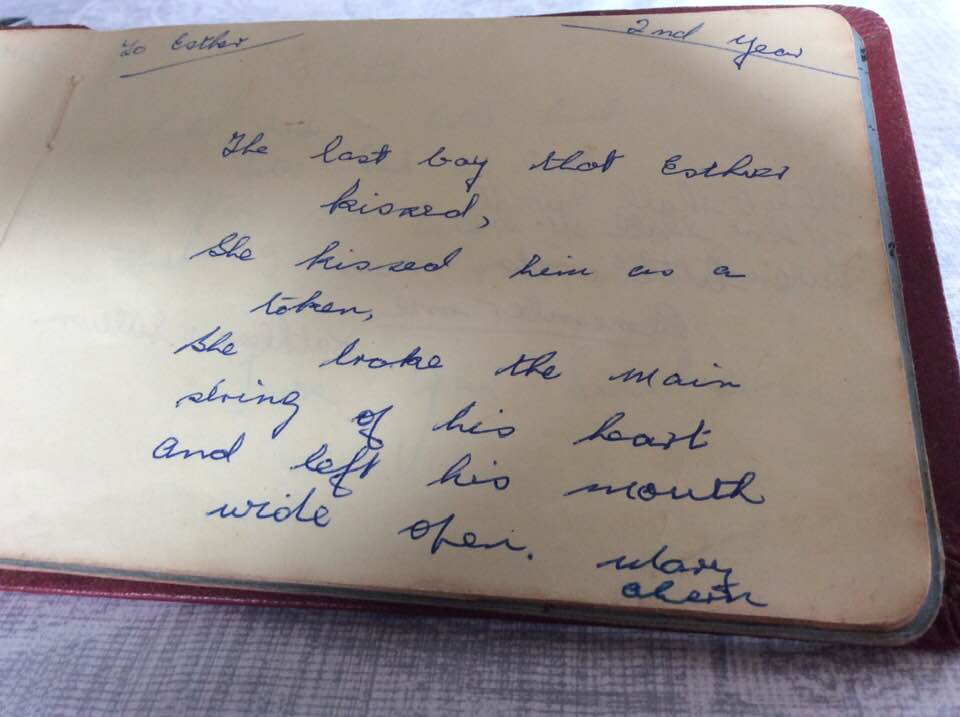 To Esther
2nd Year
The last boy that Esther
kissed,
She kissed him as a
token,
She broke the main
string of his heart
and left his mouth
wide open. Mary
Ahern